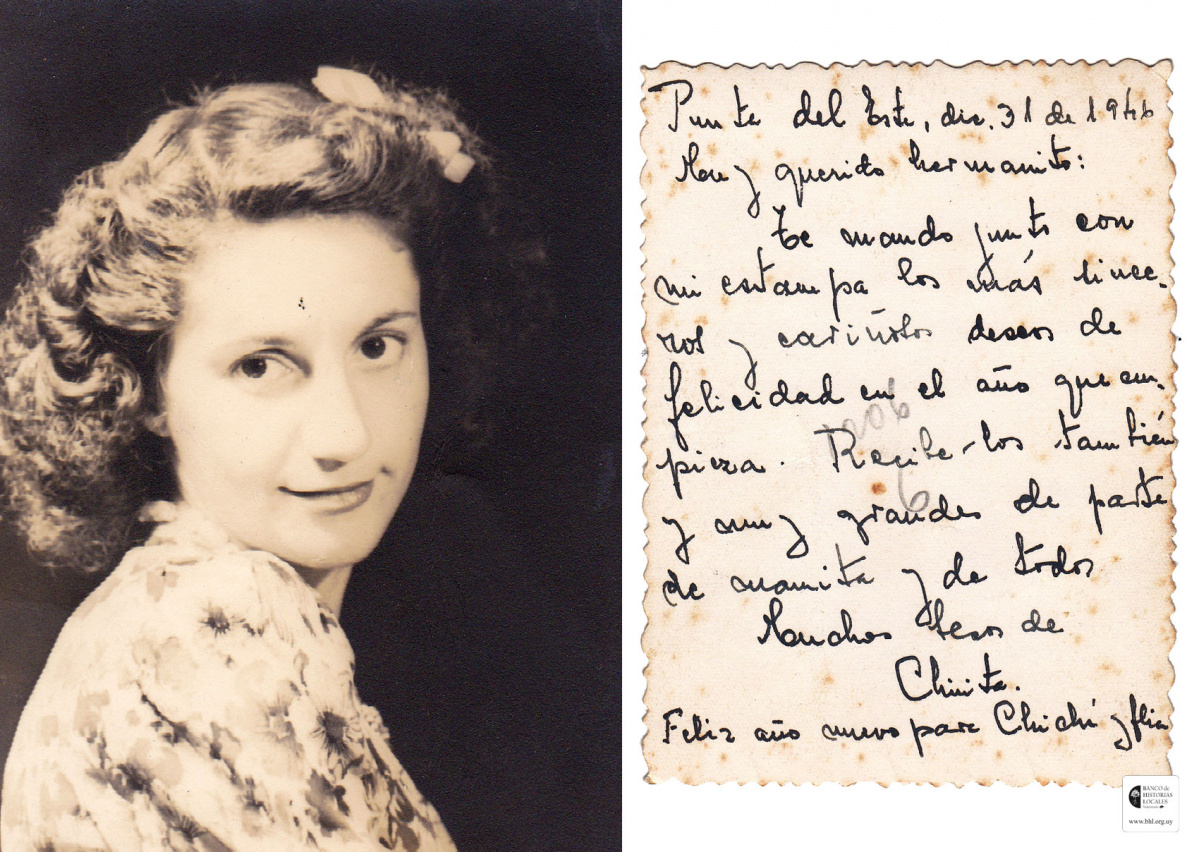 Punta del Este, dic. 31 de 1946
Muy querido hermanito:
Te mando junto con
mi estampa los más since-
ros y cariñosos deseos de
felicidad en el año que em-
pieza. Recibe-los también
y muy grandes de parte
de mamita y de todos
Muchos besos de
Chinita.
Feliz año nuevo para Chichí y flia
BANCO de
HISTORIAS
LOCALES
www.bhl.org.uy